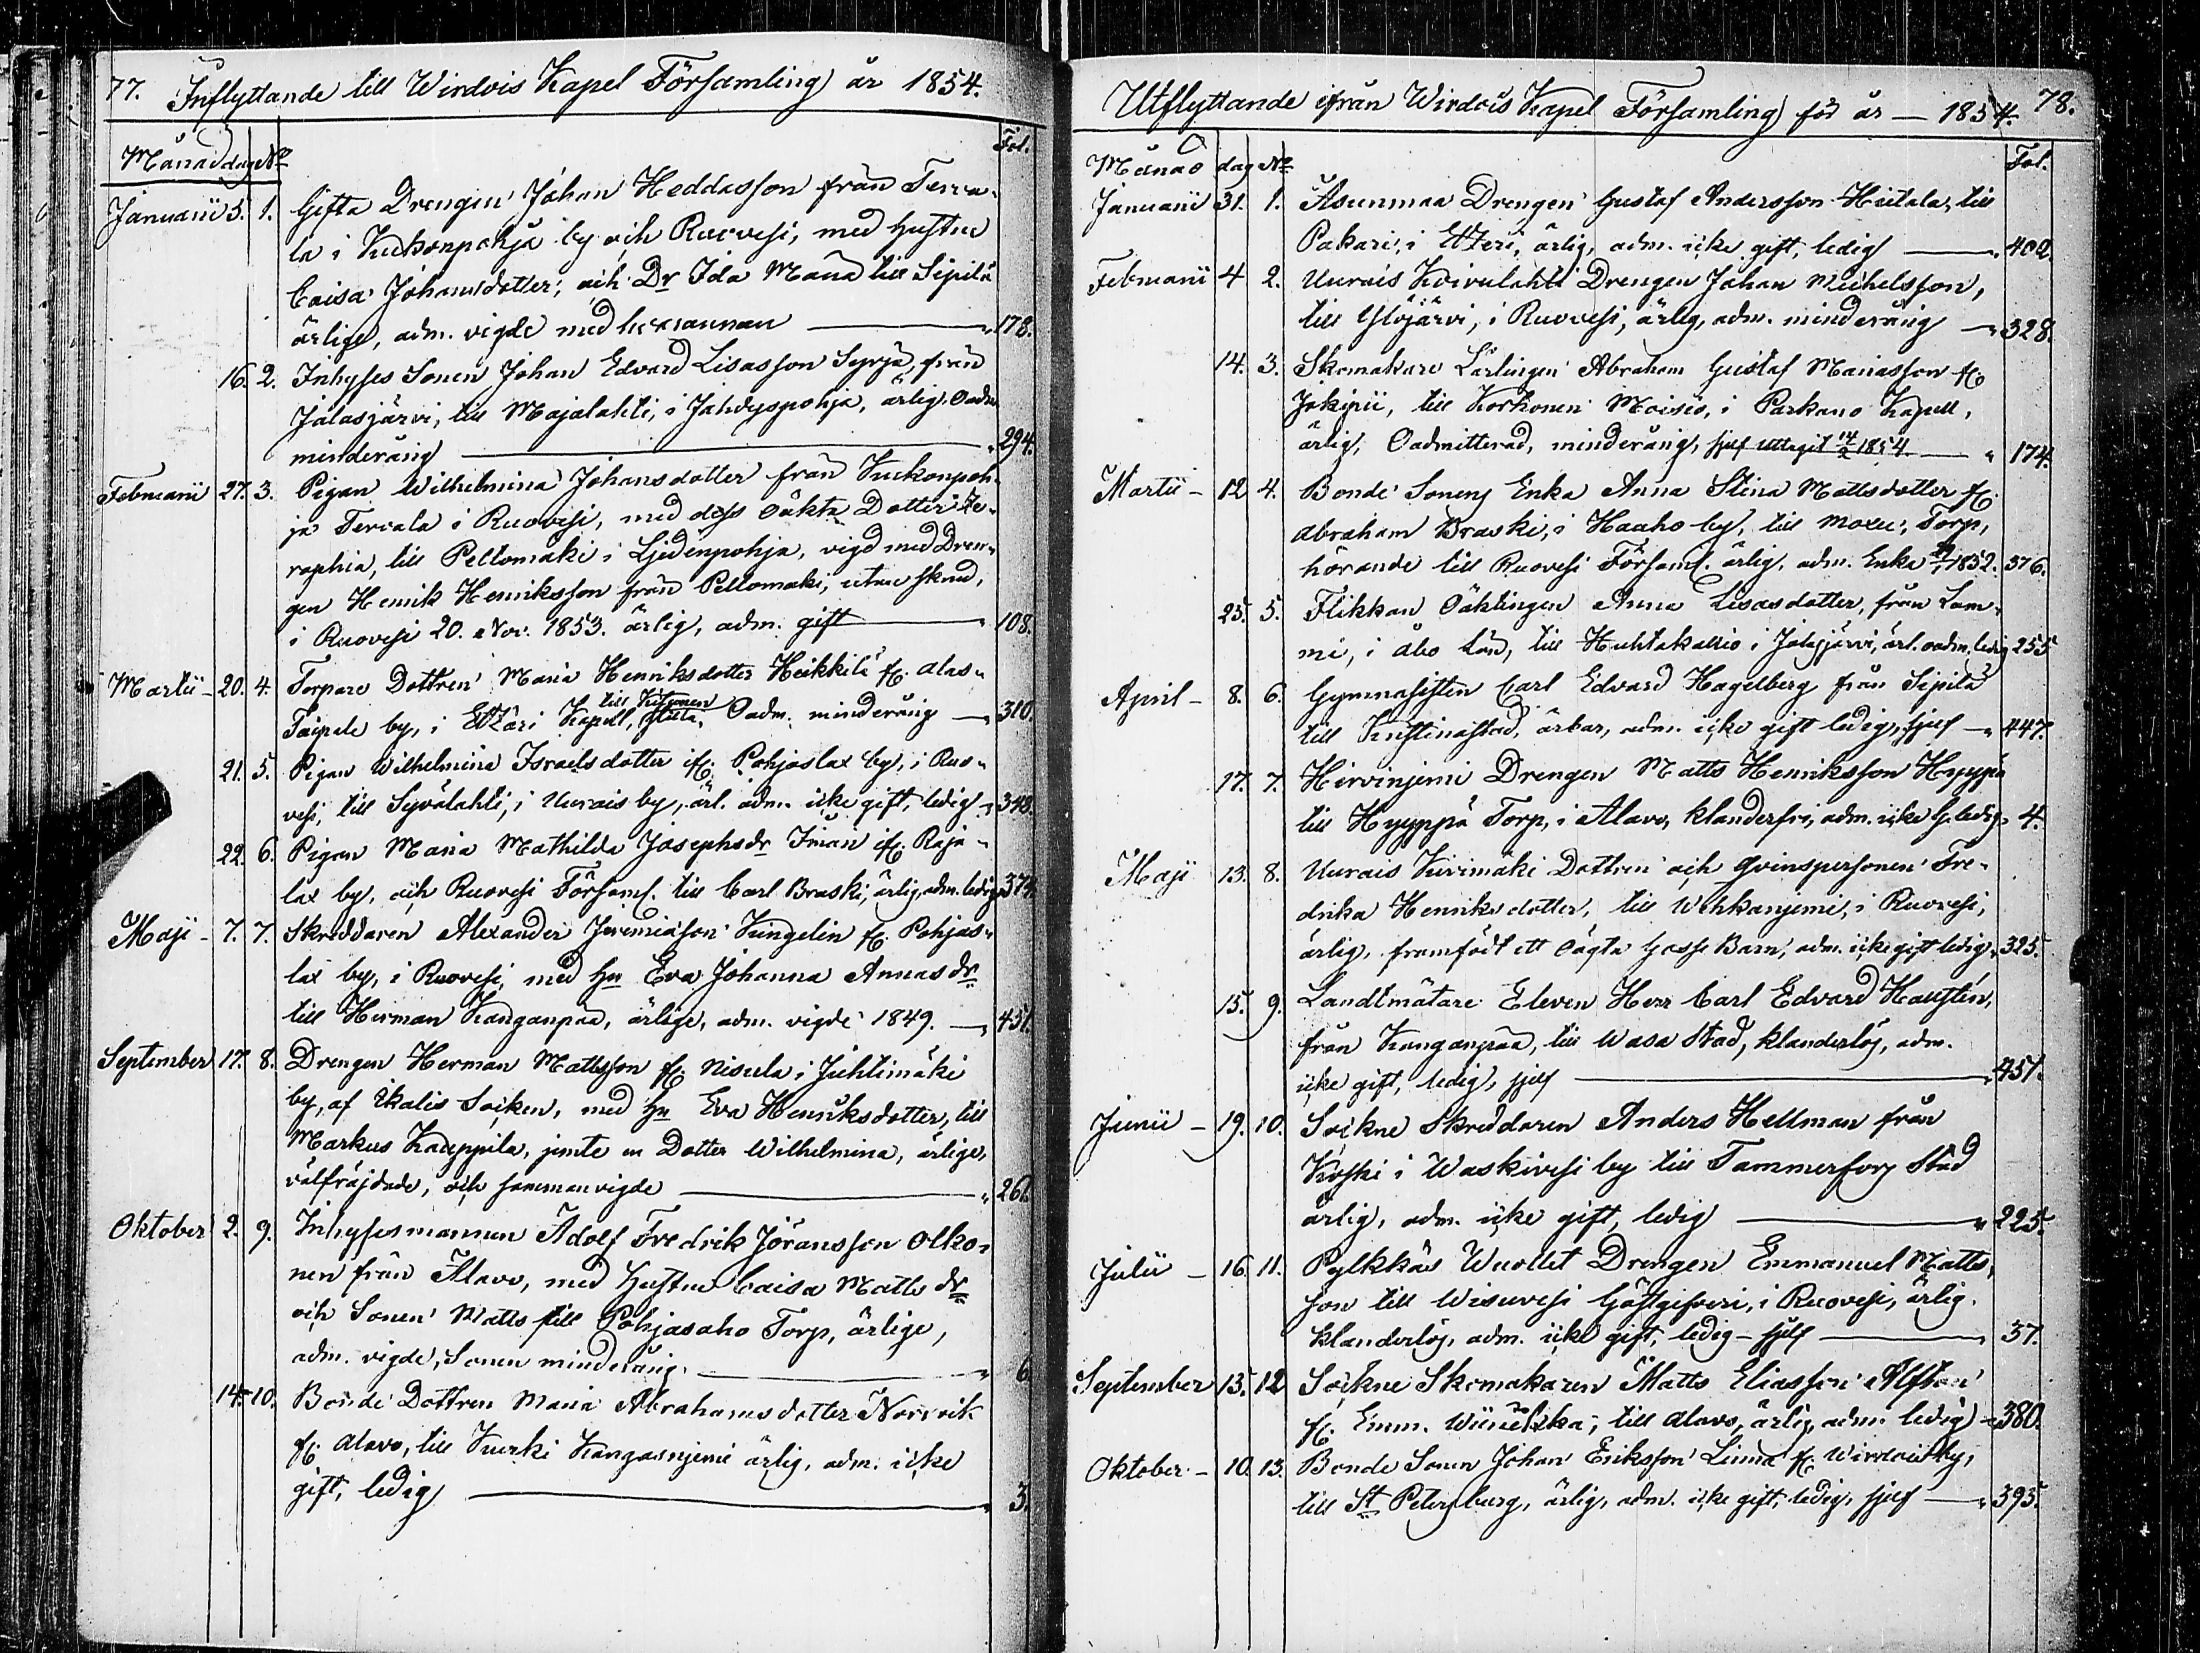 77. Inflyttande till Wirdois Kapel Församling år 1854.
Månad dag No Fol.
Januarii 5. 1. Gifta Drengen Johan Heddasson från Terva-
la i Kukonpohja by och Ruovesi, med hustru
Caisa Johansdotter, och Dr Ida Maria till Sipilä
ärlige, adm. vigde med hvarannan — " 178.
16. 2. Inhyses Sonen Johan Edvard Lisasson Syrjä, från
Jalasjärvi, till Majalahti, i Jähdyspohja, ärlig, Oadm.
minderårig — " 294.
Februarii 27. 3. Pigan Wilhelmina Johansdotter från Kukonpoh-
ja Tervala i Ruovesi, med dess oäkta Dotter Se-
raphia, till Pellomäki i Liedenpohja, vigd med Dren-
gen Henrik Henriksson från Pellomäki, utan skrud,
i Ruovesi 20. Nov. 1853. ärlig, adm. gift — " 108.
Martii - 20. 4. Torpare Dottren Maria Henriksdotter Heikkilä fr. Alas-
till
Taipale by, i Etzäri Kapell, Oadm. minderårig — " 310.
21. 5. Pigan Wilhelmina Israelsdotter ifr. Pohjaslax by, i Ruo-
vesi, till Syvälahti, i Uurais by, ärl. adm. icke gift, ledig — " 348.
22. 6. Pigan Maria Mathilda Josephsdr ifr. Raja-
lax by, och Ruovesi Församl. till Carl Braski, ärlig, adm. ledig
Maji - 7. 7. Skreddaren Alexander Jeremiasson Kungelin fr. Pohjas-
lax by, i Ruovesi, med Hu Eva Johanna Annasdr
till Herman Kanganpää, ärlige, adm. vigde 1849. — " 451.
September 17. 8. Drengen Herman Mattsson fr. Nisula i Juhtimäki
by, af Ikalis Socken, med Hu Eva Henriksdotter, till
Markus Kauppila, jemte en Dotter Wilhelmina, ärlige,
välfräjdade, och samman vigde — " 261.
Oktober 2. 9. Inhysesmannen Adolf Fredrik Jöransson Olko-
nen från Alavo, med hustru Caisa Matts dr
och Sonen Matts till Pohjasaho Torp, ärlige,
adm. vigde, Sonen minderårig. — " 6.
14. 10. Bonde Dottren Maria Abrahamsdotter Norrvik
fr. Alavo, till Kurki Kangasnjemi ärlig, adm. icke
gift, ledig — " 3.
Utflyttande ifrån Wirdois Kapel Församling för år — 1854. 78.
Månad dag No Fol.
Januarii 31. 1. Äsunmaa Drengen Gustaf Andersson Hietala, till
Pakari, i Etzeri, ärlig, adm. icke gift, ledig — " 402.
Februarii 4 2. Uurais Koivulahti Drengen Johan Michelsson,
till Ylöjärvi, i Ruovesi, ärlig, adm. minderårig — " 328.
14. 3. Skomakare Lärlingen Abraham Gustaf Mariasson fr.
Jokipii, till Korhonen Moisio, i Parkano Kapell,
ärlig, Oadmitterad, minderårig, sjelf uttagit 14/2 1854. — " 174.
Martii - 12. 4. Bonde Sonens Enka Anna Stina Mattsdotter fr.
Abraham Braski, i Haaho by, till Torp,
hörande till Ruovesi Församl. ärlig, adm. Enka 1852. 376.
25. 5. Flickan Oäktingen Anna Lisasdotter, från Lam-
mi, i Åbo Län, till Huhtakallio i Jalasjärvi, ärl. oadm. ledig 255
April - 8. 6. Gymnasisten Carl Edvard Hagelberg från Sipilä
till Kristinestad, ärbar, adm. icke gift ledig, sjelf — " 447.
17. 7. Hirvinjemi Drengen Matts Henriksson Hyyppä
till Hyyppä Torp, i Alavo, klanderfri, adm. icke G. ledig " 4.
Maji 13. 8. Uurais Kivimäki Dottren och Qvinspersonen Fre-
drika Henriksdotter, till Wehkanjemi, i Ruovesi,
ärlig, framfödt ett oägta Gosse Barn, adm. icke gift ledig " 325.
15. 9. Landtmätare Eleven Herr Carl Edvard Hausten,
från Kanganpää, till Wasa Stad, klanderlös, adm.
icke gift, ledig, sjelf — " 451.
Junii - 19. 10. Sockne Skreddaren Anders Hellman från
Koski i Waskivesi by till Tammerfors Stad
ärlig, adm. icke gift, ledig — " 225.
Julii - 16. 11. Pylkkäs Wuollet Drengen Emmanuel Matts-
son till Wisuvesi Gästgifveri, i Ruovesi, ärlig.
klanderlös, adm. icke gift, ledig - sjelf — " 37.
September 13. 12 Sockne Skomakaren Matts Eliasson Alftan
fr. Emm. till Alavo, ärlig, adm. ledig — 380.
Oktober - 10. 13. Bonde Sonen Johan Eriksson Linna fr. Wirdois by,
till St Petersburg, ärlig, adm. icke gift, ledig, sjelf — " 393.